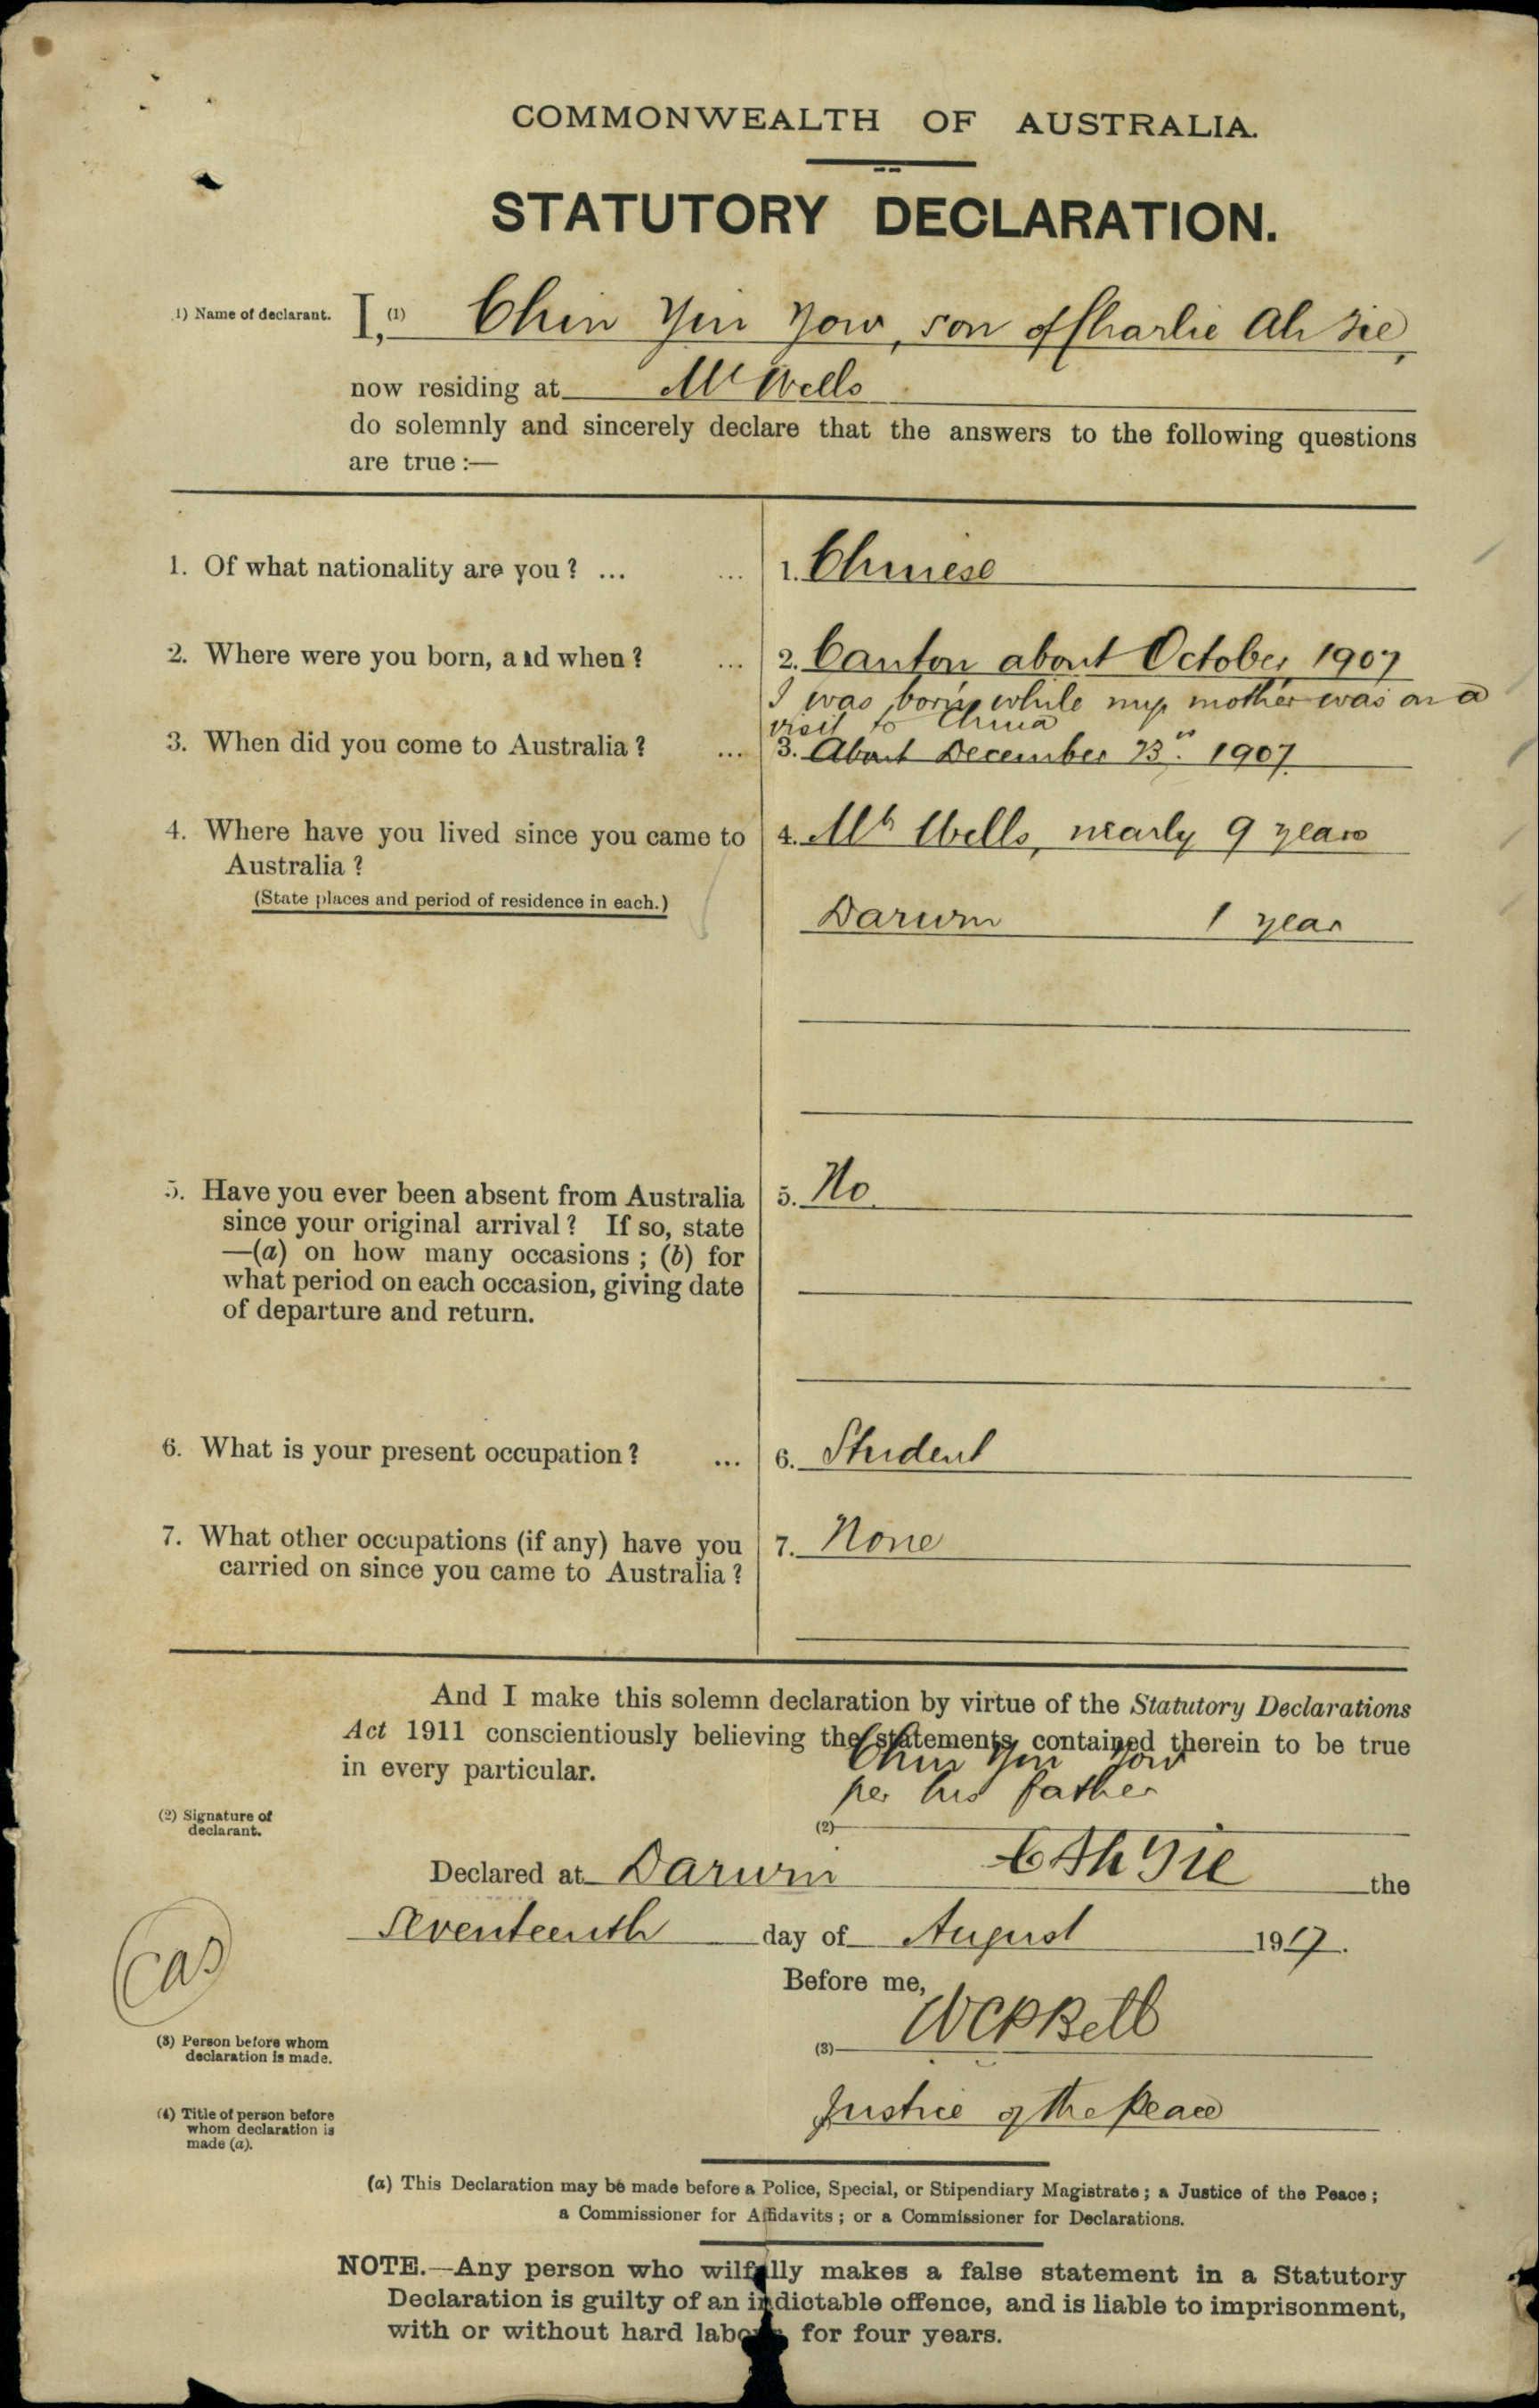 COMMONWEALTH OF AUSTRALIA.
STATUTORY DECLARATION.
1) Name of declarant. I, (1) Chin Yin Yow, son of Charlie Ah Gie,
now residing at Mt Wells
do solemnly and sincerely declare that the answers to the following questions
are true :—
1. Of what nationality are you ? ... ... 1. Chinese
2. Where were you born, and when ? ... 2. Canton about October 1907
I was born while my mother was on a
visit to China
3. When did you come to Australia ? ... 3. About December 23rd. 1907
4. Where have you lived since you came to 4. Mt Wells, nearly 9 years
Australia ?
(State places and period of residence in each.) Darwin 1 year
5. Have you ever been absent from Australia 5. No.
since your original arrival ? If so, state
—(a) on how many occasions ; (b) for
what period on each occasion, giving date
of departure and return.
6. What is your present occupation ? ... 6. Student
7. What other occupations (if any) have you 7. None
carried on since you came to Australia ?
And I make this solemn declaration by virtue of the Statutory Declarations
Act 1911 conscientiously believing the statements contained therein to be true
in every particular. Chin Yin Yow
per his father
(2) Signature of
declarant.
(2)
Declared at Darwin C Ah Gie the
Seventeenth day of August 1917.
Before me,
(3) Person before whom
declaration is made.
(3) WCPBell
(4) Title of person before
whom declaration is
made (a).
Justice of the Peace
(a) This Declaration may be made before a Police, Special, or Stipendiary Magistrate ; a Justice of the Peace ;
a Commissioner for Affidavits ; or a Commissioner for Declarations.
NOTE.—Any person who wilfully makes a false statement in a Statutory
Declaration is guilty of an indictable offence, and is liable to imprisonment,
with or without hard labour for four years.